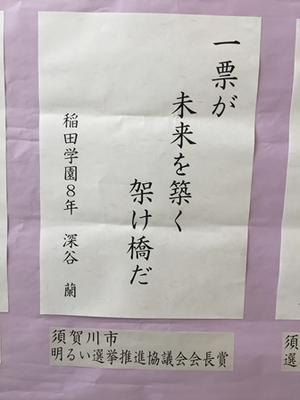 一票が
未来を築く
架け橋だ
稲田学園8年 深谷 蘭
須賀川市
明るい選挙推進協議会会長賞
須
選